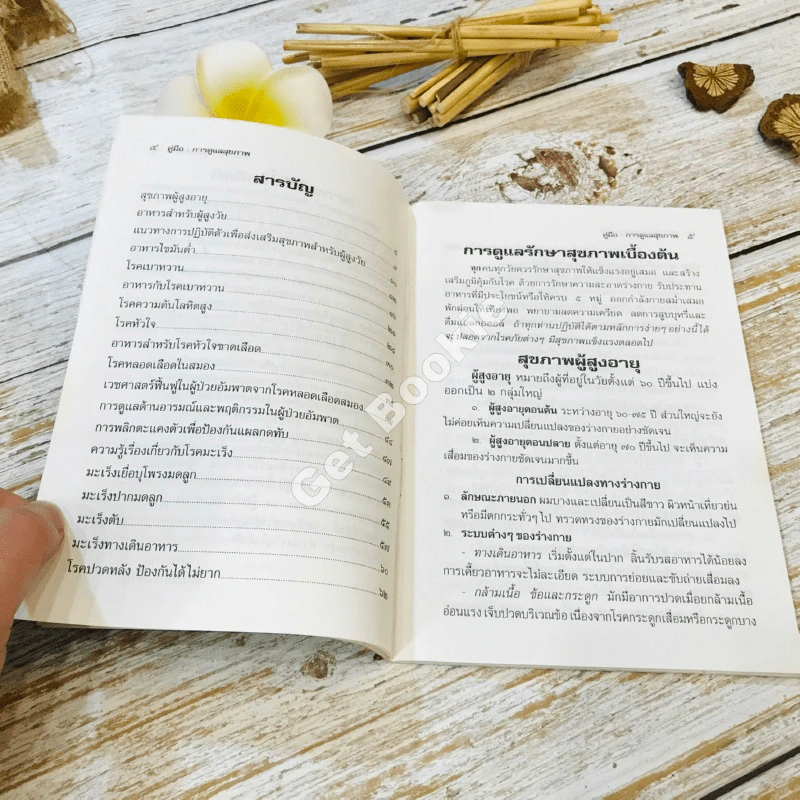 ๔ คู่มือ : การดูแลสุขภาพ
สารบัญ
สุขภาพผู้สูงอายุ
อาหารสำหรับผู้สูงวัย ๕
แนวทางการปฏิบัติตัวเพื่อส่งเสริมสุขภาพสำหรับผู้สูงวัย
อาหารไขมันต่ำ
โรคเบาหวาน
อาหารกับโรคเบาหวาน
โรคความดันโลหิตสูง
โรคหัวใจ
อาหารสำหรับโรคหัวใจขาดเลือด
โรคหลอดเลือดในสมอง
เวชศาสตร์ฟื้นฟูในผู้ป่วยอัมพาตจากโรคหลอดเลือดสมอง
การดูแลด้านอารมณ์และพฤติกรรมในผู้ป่วยอัมพาต
การพลิกตะแคงตัวเพื่อป้องกันแผลกดทับ
ความรู้เรื่องเกี่ยวกับโรคมะเร็ง ๔๔
มะเร็งเยื่อบุโพรงมดลูก ๔๗
มะเร็งปากมดลูก
มะเร็งตับ ๕๓
มะเร็งทางเดินอาหาร ๕๕
โรคปวดหลัง ป้องกันได้ไม่ยาก ๖๐
๖๒
คู่มือ : การดูแลสุขภาพ ๕
การดูแลรักษาสุขภาพเบื้องต้น
ทุกคนทุกวัยควรรักษาสุขภาพให้แข็งแรงอยู่เสมอ และสร้าง
เสริมภูมิคุ้มกันโรค ด้วยการรักษาความสะอาดร่างกาย รับประทาน
อาหารที่มีประโยชน์หรือให้ครบ ๕ หมู่ ออกกำลังกายสม่ำเสมอ
พักผ่อนให้เพียงพอ พยายามลดความเครียด ลดการสูบบุหรี่และ
ดื่มแอลกอฮอล์ ถ้าทุกท่านปฏิบัติได้ตามหลักการง่ายๆ อย่างนี้ได้
จะปลอดจากโรคภัยต่างๆ มีสุขภาพแข็งแรงตลอดไป
สุขภาพผู้สูงอายุ
ผู้สูงอายุ หมายถึงผู้ที่อยู่ในวัยตั้งแต่ ๖๐ ปีขึ้นไป แบ่ง
ออกเป็น ๒ กลุ่มใหญ่
๑. ผู้สูงอายุตอนต้น ระหว่างอายุ ๖๐-๗๕ ปี ส่วนใหญ่จะยัง
ไม่ค่อยเห็นความเปลี่ยนแปลงของร่างกายอย่างชัดเจน
๒. ผู้สูงอายุตอนปลาย ตั้งแต่อายุ ๗๐ ปีขึ้นไป จะเห็นความ
เสื่อมของร่างกายชัดเจนมากขึ้น
การเปลี่ยนแปลงทางร่างกาย
๑. ลักษณะภายนอก ผมบางและเปลี่ยนเป็นสีขาว ผิวหน้าเหี่ยวย่น
หรือมีตกกระทั่วๆ ไป ทรวดทรงของร่างกายมักเปลี่ยนแปลงไป
๒. ระบบต่างๆ ของร่างกาย
- ทางเดินอาหาร เริ่มตั้งแต่ในปาก ลิ้นรับรสอาหารได้น้อยลง
การเคี้ยวอาหารจะไม่ละเอียด ระบบการย่อยและขับถ่ายเสื่อมลง
- กล้ามเนื้อ ข้อและกระดูก มักมีอาการปวดเมื่อยกล้ามเนื้อ
อ่อนแรง เจ็บปวดบริเวณข้อ เนื่องจากโรคกระดูกเสื่อมหรือกระดูกบาง
Get Bookie